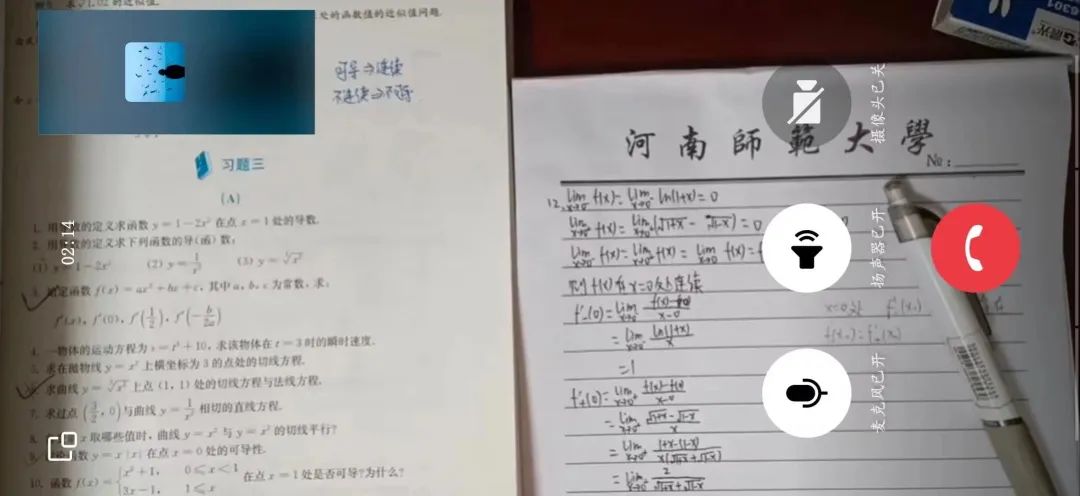 求√1.02的近似值.
处的函数值的近似值问题.
可导⇒连续
不连续⇒不可导
习题三
(A)
1. 用导数的定义求函数 y=1-2x² 在点 x=1 处的导数.
2. 用导数的定义求下列函数的导(函)数:
(1) y=1-2x² (2) y=1/x² (3) y=∛x²
3. 给定函数 f(x)=ax²+bx+c, 其中 a、b、c 为常数, 求:
f′(x), f′(0), f′(1/2), f′(-b/2a)
4. 一物体的运动方程为 s=t³+10, 求该物体在 t=3 时的瞬时速度.
5. 求在抛物线 y=x² 上横坐标为 3 的点处的切线方程.
6. 求曲线 y=∛x² 上点 (1, 1) 处的切线方程与法线方程.
7. 求过点 (3/2, 0) 与曲线 y=1/x² 相切的直线方程.
8. x 取哪些值时, 曲线 y=x² 与 y=x³ 的切线平行?
函数 y=x|x| 在点 x=0 处的可导性.
10. 函数 f(x)={x²+1, 0≤x<1
3x-1, 1≤x
在点 x=1 处是否可导?为什么?
02:14
河南師範大學
№:
12. lim x→0⁻ f(x)=lim x→0⁻ ln(1+x)=0
lim x→0⁺ f(x)=lim x→0⁺(√1+x - √1-x)=0
lim x→0⁻ f(x)=lim x→0⁺ f(x)=lim x→0 f(x)=f
则 f(x) 在 x=0 处连续
f′₋(0)=lim x→0⁻ f(x)-f(0)/x-0
=lim x→0⁻ ln(1+x)/x
=1
f′₊(0)=lim x→0⁺ f(x)-f(0)/x-0
=lim x→0⁺ √1+x-√1-x/x
=lim x→0⁺ 1+x-(1-x)/x(√1+x+√1-x)
=lim x→0⁺ 2/√1+x+√1-x
x=0处
摄像头已关
扬声器已开
麦克风已开
晨光
6301